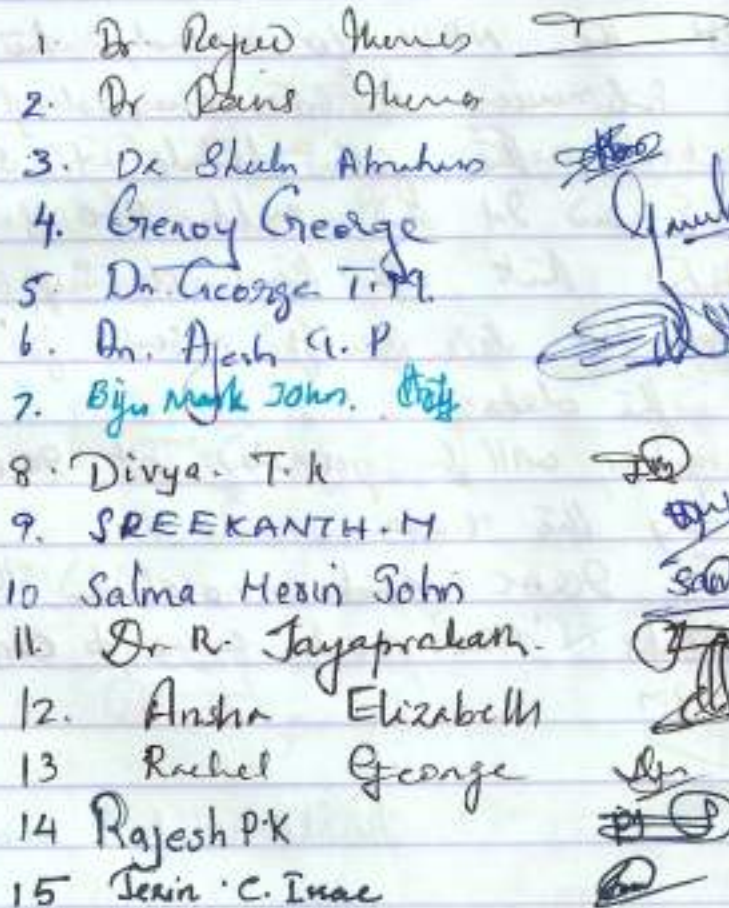 1. Dr. Rajeev Thomas
2. Dr Rains Thomas
3. Dr Sheeln Abraham
4. Genoy George
5. Dr. George T.M.
6. Dr. Ajesh G. P
7. Biju Mark John.
8. Divya. T. k
9. SREEKANTH. M
10 Salma Merin John
11. Dr R. Jayaprakash.
12. Ansha Elizabeth
13 Rachel George
14 Rajesh P.K
15 Jerin C. Isaac